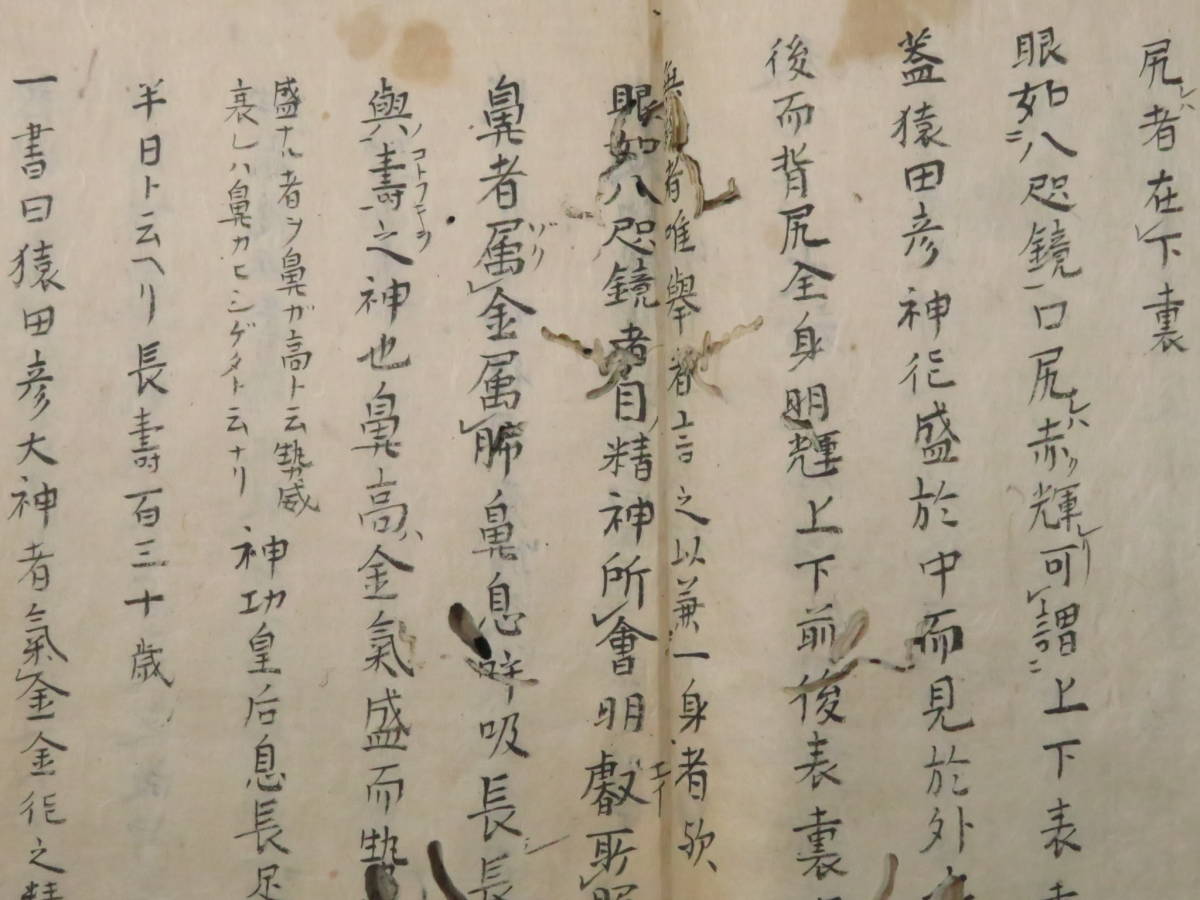 尻者在下裏
眼如八咫鏡口尻赤輝可謂上下表
蓋猿田彦神徳盛於中而見於外
後而背尻全身明輝上下前後表裏
者唯擧者上言之以兼一身者歟
眼如八咫鏡者目精神所會明叡所照
鼻者属金属肺鼻息呼吸長長
與壽之神也鼻高ハ金氣盛而勢
盛ナル者ヲ鼻ガ高ト云勢威
衰レハ鼻カヒシゲタト云ナリ 神功皇后息長足
半日ト云ヘリ長壽百三十歳
一書曰猿田彦大神者氣釜金徳之